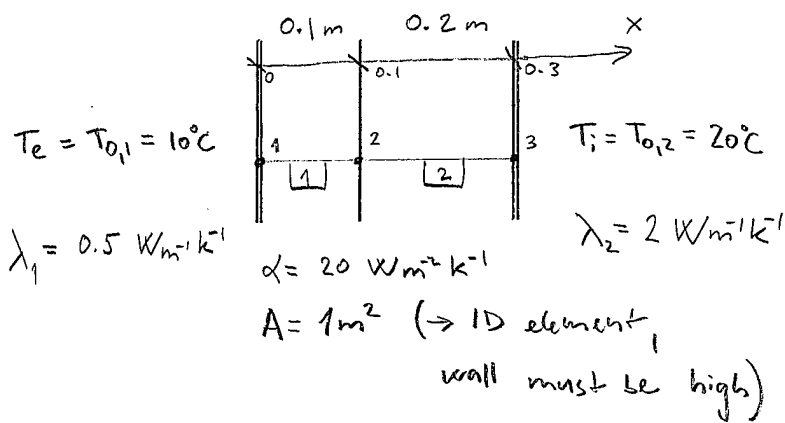 0.1 m 0.2 m x
0 0.1 0.3
Te = T0,1 = 10°C 1 2 3 Ti = T0,2 = 20°C
1 2
λ1 = 0.5 Wm⁻¹k⁻¹ λ2 = 2 Wm⁻¹k⁻¹
α = 20 Wm⁻²k⁻¹
A = 1m² (→ 1D element,
wall must be high)